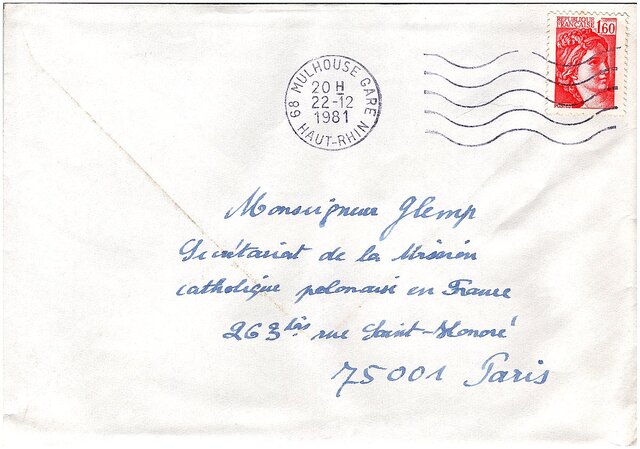 REPUBLIQUE
FRANÇAISE 1,60
68 MULHOUSE GARE
20 H
22-12
1981
HAUT-RHIN
Monseigneur Glemp
Secrétariat de la Mission
catholique polonaise en France
263 bis rue Saint-Honoré
75001 Paris